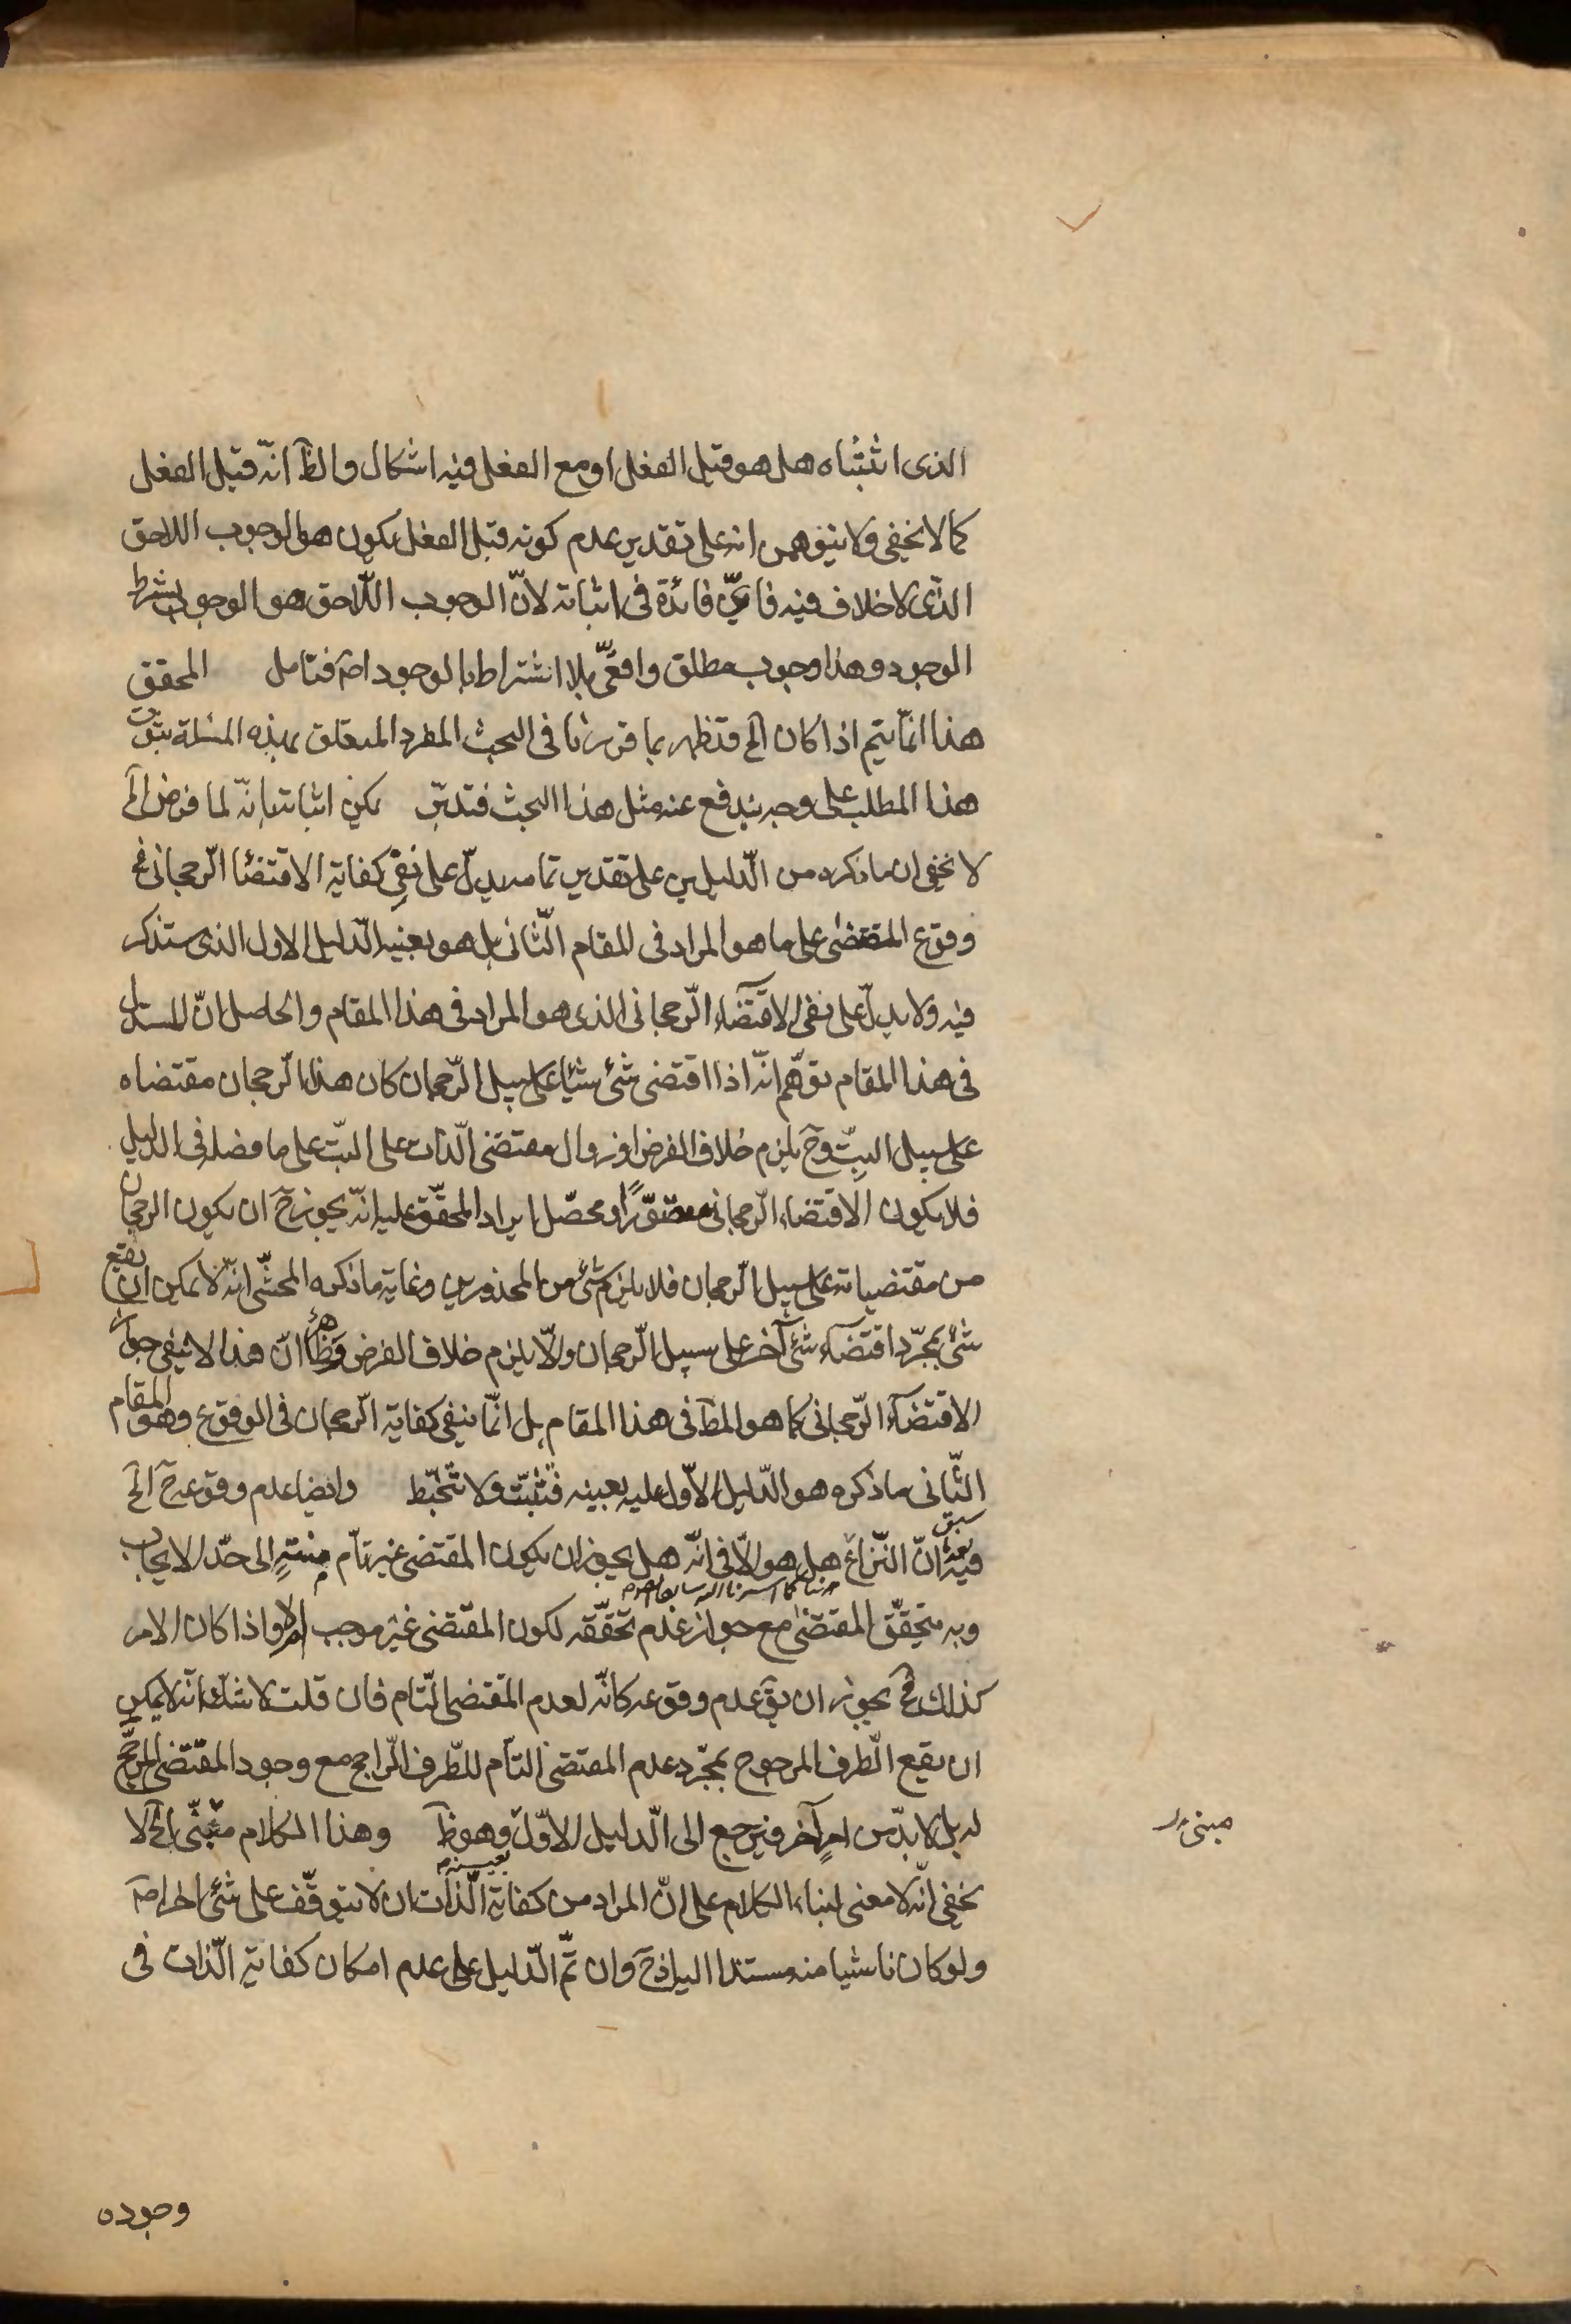 الذى اثبتناه هل هو قبل الفعل او مع الفعل فيه اشكال والظ انّه قبل الفعل
كما لا يخفى ولا يتوهمن انه على تقدير عدم كونه قبل الفعل يكون هو الوجوب اللاحق
الذى لا خلاف فيه فاىّ فائدة فى اثباته لانّ الوجوب اللّاحق هو الوجوب بشرط
الوجود وهذا وجوب مطلق واقعىّ بلا اشتراط بالوجود اصلا فتامل المحقق
هذا انّما يتم اذا كان الخ قد ظهر بما قررنا فى البحث المفرد المتعلق بهذه المسئلة
هذا المطلب على وجه يندفع عنه مثل هذا البحث فتدبّر يمكن اثباته بانّه لما فرض الخ
لا يخفى ان ما ذكره من الدّليلين على تقدير تمامه يدلّ على نفى كفاية الاقتضاء الرّجحانى فى
وقوع المقتضى على ما هو المراد فى المقام الثّانى بل هو بعينه الدّليل الاول الذى ستذكر
فيه ولا يدلّ على نفى الاقتضاء الرّجحانى الذى هو المراد فى هذا المقام والحاصل انّ المستدل
فى هذا المقام توهّم انّه اذا اقتضى شئ شيئا على سبيل الرّجحان كان هذا الرّجحان مقتضاه
على سبيل البتّ وح يلزم خلاف الفرض او زوال مقتضى الذّات على البتّ على ما فصله فى الدليل
فلا يكون الاقتضاء الرّجحانى متصوّرًا ومحصّل ايراد المحقّق عليه انّه يجوز ح ان يكون الرجحان
من مقتضياته على سبيل الرّجحان فلا يلزم شئ من المحذورين وغاية ما ذكره المحشّى انّه لا يمكن ان يقع
شئ بمجرّد اقتضاء شئ آخر على سبيل الرّجحان والّا يلزم خلاف الفرض وظ انّ هذا لا ينفى جواز
الاقتضاء الرّجحانى كما هو المط فى هذا المقام بل انّما ينفى كفاية الرّجحان فى الوقوع وهو المقام
الثّانى ما ذكره هو الدّليل الاوّل عليه بعينه فتثبّت ولا تتخبّط وايضا عدم وقوعه ح الخ
فيه انّ النّزاع هل هو الّا فى انّه هل يجوز ان يكون المقتضى غير تامّ منتهٍ الى حدّ الايجاب
وبه يتحقّق المقتضى مع جواز عدم تحقّقه لكون المقتضى غير موجب ام لا واذا كان الامر
كذلك فح يجوز ان يق عدم وقوعه كانّه لعدم المقتضى التّام فان قلت لا شكّ انّه لا يمكن
ان يقع الطّرف المرجوح بمجرّد عدم المقتضى التامّ للطّرف الرّاجح مع وجود المقتضى المرجّح
له بل لا بدّ من امرٍ آخر فيرجع الى الدّليل الاوّل وهو ظ وهذا الكلام مبنّى الخ لا
يخفى انّه لا معنى لبناء الكلام على انّ المراد من كفاية الذّات ان لا يتوقّف على شئ اخر اصلا
ولو كان ناشيا منه مستندا اليه اذ ح وان تمّ الدّليل على عدم امكان كفاية الذّات فى
وجوده